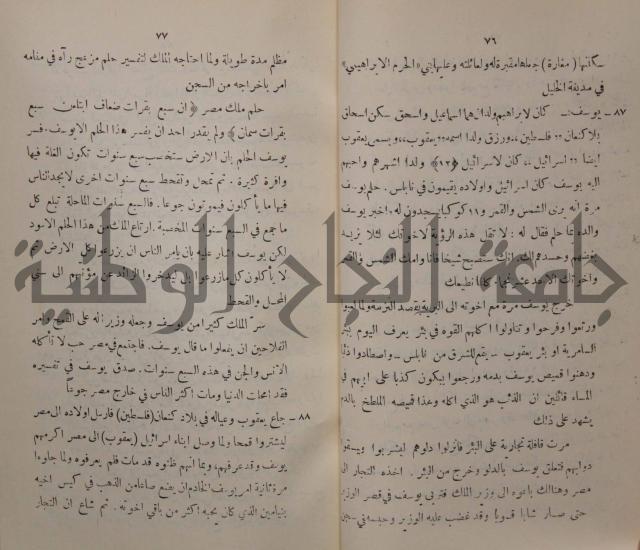 ٧٦
سكانها (مغارة) جعلها مقبرة له ولعائلته وعليها بني «الحرم الابراهيمي»
في مدينة الخليل
٨٧ – يوسف: كان لابراهيم ولدان هما اسماعيل واسحق سكن اسحاق
بلاد كنعان فلسطين ورزق ولدا اسمه يعقوب ويسمى يعقوب
ايضا اسرائيل كان لاسرائيل (١٢) ولدا اشهرهم واحبهم
اليه يوسف كان اسرائيل واولاده يقيمون في نابلس . حلم يوسف
مرة انه يرى الشمس والقمر و١١ كوكبا يسجدون له . اخبر يوسف
والده بما حلم فقال له : لا تقل هذه الرؤية لاخوتك لئلا تزيد
بغضهم وحسدهم لك ستصبح شيخا فانا وامك الشمس والقمر
واخوتك الاحد عشر
خرج يوسف مرة مع اخوته الى البرية بقصد النزهة ولما لعبوا
ورتعوا وفرحوا وتناولوا اكلهم القوه في بئر يعرف اليوم ببئر
السامرية او بئر يعقوب – يقع للشرق من نابلس – واصطادوا
ودهنوا قميص يوسف بدمه ورجعوا يبكون كذبا على اخيهم في
المساء قائلين ان الذئب هو الذي اكله وهذا قميصه الملطخ بالدم
يشهد على ذلك
مرت قافلة تجارية على البئر فانزلوا دلوهم ليشربوا ويسقوا
دوابهم فتعلق يوسف بالدلو وخرج من البئر . اخذه التجار الى
مصر وهنالك باعوه الى وزير الملك فتربى يوسف في قصر الوزير
حتى صار شابا قويا وقد غضب عليه الوزير وحبسه في سجن
٧٧
مظلم مدة طويلة ولما احتاجه الملك لتفسير حلم مزعج رآه في منامه
امر باخراجه من السجن
حلم ملك مصر (ان سبع بقرات ضعاف ابتلعن سبع
بقرات سمان) ولم يقدر احد ان يفسر هذا الحلم الا يوسف . فسر
يوسف الحلم بان الارض ستخصب سبع سنوات تكون الغلة فيها
وافرة كثيرة . ثم تمحل وتقحط سبع سنوات اخرى لا يجد الناس
فيها ما يأكلون فيموتون جوعا . فالسبع سنوات الماحلة تبلع كل
ما جمع في السبع سنوات المخصبة . ارتاع الملك من هذا الحلم الاسود
لكن يوسف اشار عليه بان يأمر الناس ان يزرعوا كل الارض ثم
لا يأكلون كل ما زرعوا بل ليدخروا الزائد عن مؤنتهم الى سني
المحل والقحط
سر الملك كثيرا من يوسف وجعله وزيرا له على القمح وامر
الفلاحين ان يفعلوا ما قال يوسف . فاجتمع في مصر حب لا تأكله
الانس والجن في هذه السبع سنوات . صدق يوسف في تفسيره
فقد امحلت الدنيا ومات اكثر الناس في خارج مصر جوعاً
٨٨ – جاع يعقوب وعياله في بلاد كنعان (فلسطين) فارسل اولاده الى مصر
ليشتروا قمحا ولما وصل ابناء اسرائيل (يعقوب) الى مصر اكرمهم
يوسف وقد عرفهم، وبما انهم ظنوه قد مات فلم يعرفوه ولما جاءوا
مرة ثانية امر يوسف الخادم ان يضع صاعا من الذهب في كيس اخيه
بنيامين الذي كان يحبه اكثر من باقي اخوته . ثم شاع ان التجار
جامعة النجاح الوطنية